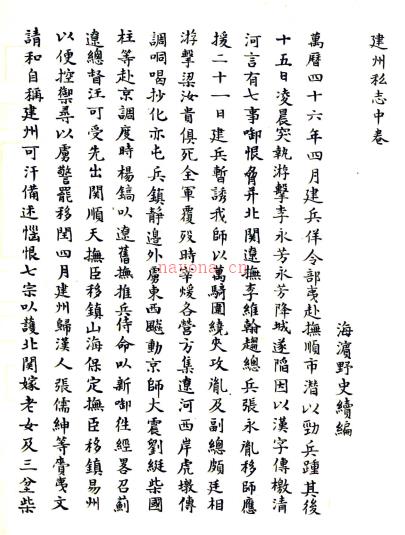 建州私志中卷
海濱野史續編
萬曆四十六年四月建兵佯令部夷赴撫順市潛以勁兵踵其後
十五日凌晨突執游擊李永芳永芳降城遂陷因以漢字傳檄清
河言有七事啣恨脅并北関遼撫李維翰趨總兵張永胤移師應
援二十一日建兵暫誘我師以萬騎圍繞夾攻胤及副總頗廷相
游擊梁汝貴俱死全軍覆歿時宰煖各營方集遼河西岸虎墩傳
調哃喝抄化亦屯兵鎮靜邊外虜東西飈動京師大震劉綎柴國
柱等赴京調度時楊鎬以遼舊撫推兵侍命以新啣徃經畧召薊
遼總督汪可受先出関順天撫臣移鎮山海保定撫臣移鎮易州
以便控禦尋以虜警罷移閏四月建州歸漢人張儒紳等賫夷文
請和自稱建州可汗備述惱恨七宗以護北関嫁老女及三岔柴
nayona.cn